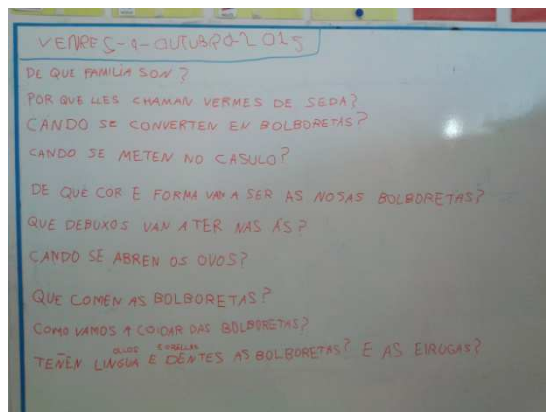 VENRES-9-OUTUBRO-2015
DE QUE FAMILIA SON?
POR QUE LLES CHAMAN VERMES DE SEDA?
CANDO SE CONVERTEN EN BOLBORETAS?
CANDO SE METEN NO CASULO?
DE QUE COR E FORMA VAN A SER AS NOSAS BOLBORETAS?
QUE DEBUXOS VAN A TER NAS ÁS?
CANDO SE ABREN OS OVOS?
QUE COMEN AS BOLBORETAS?
COMO VAMOS A COIDAR DAS BOLBORETAS?
OLLOS ORELLAS
TEÑEN LINGUA E DENTES AS BOLBORETAS? E AS EIRUGAS?